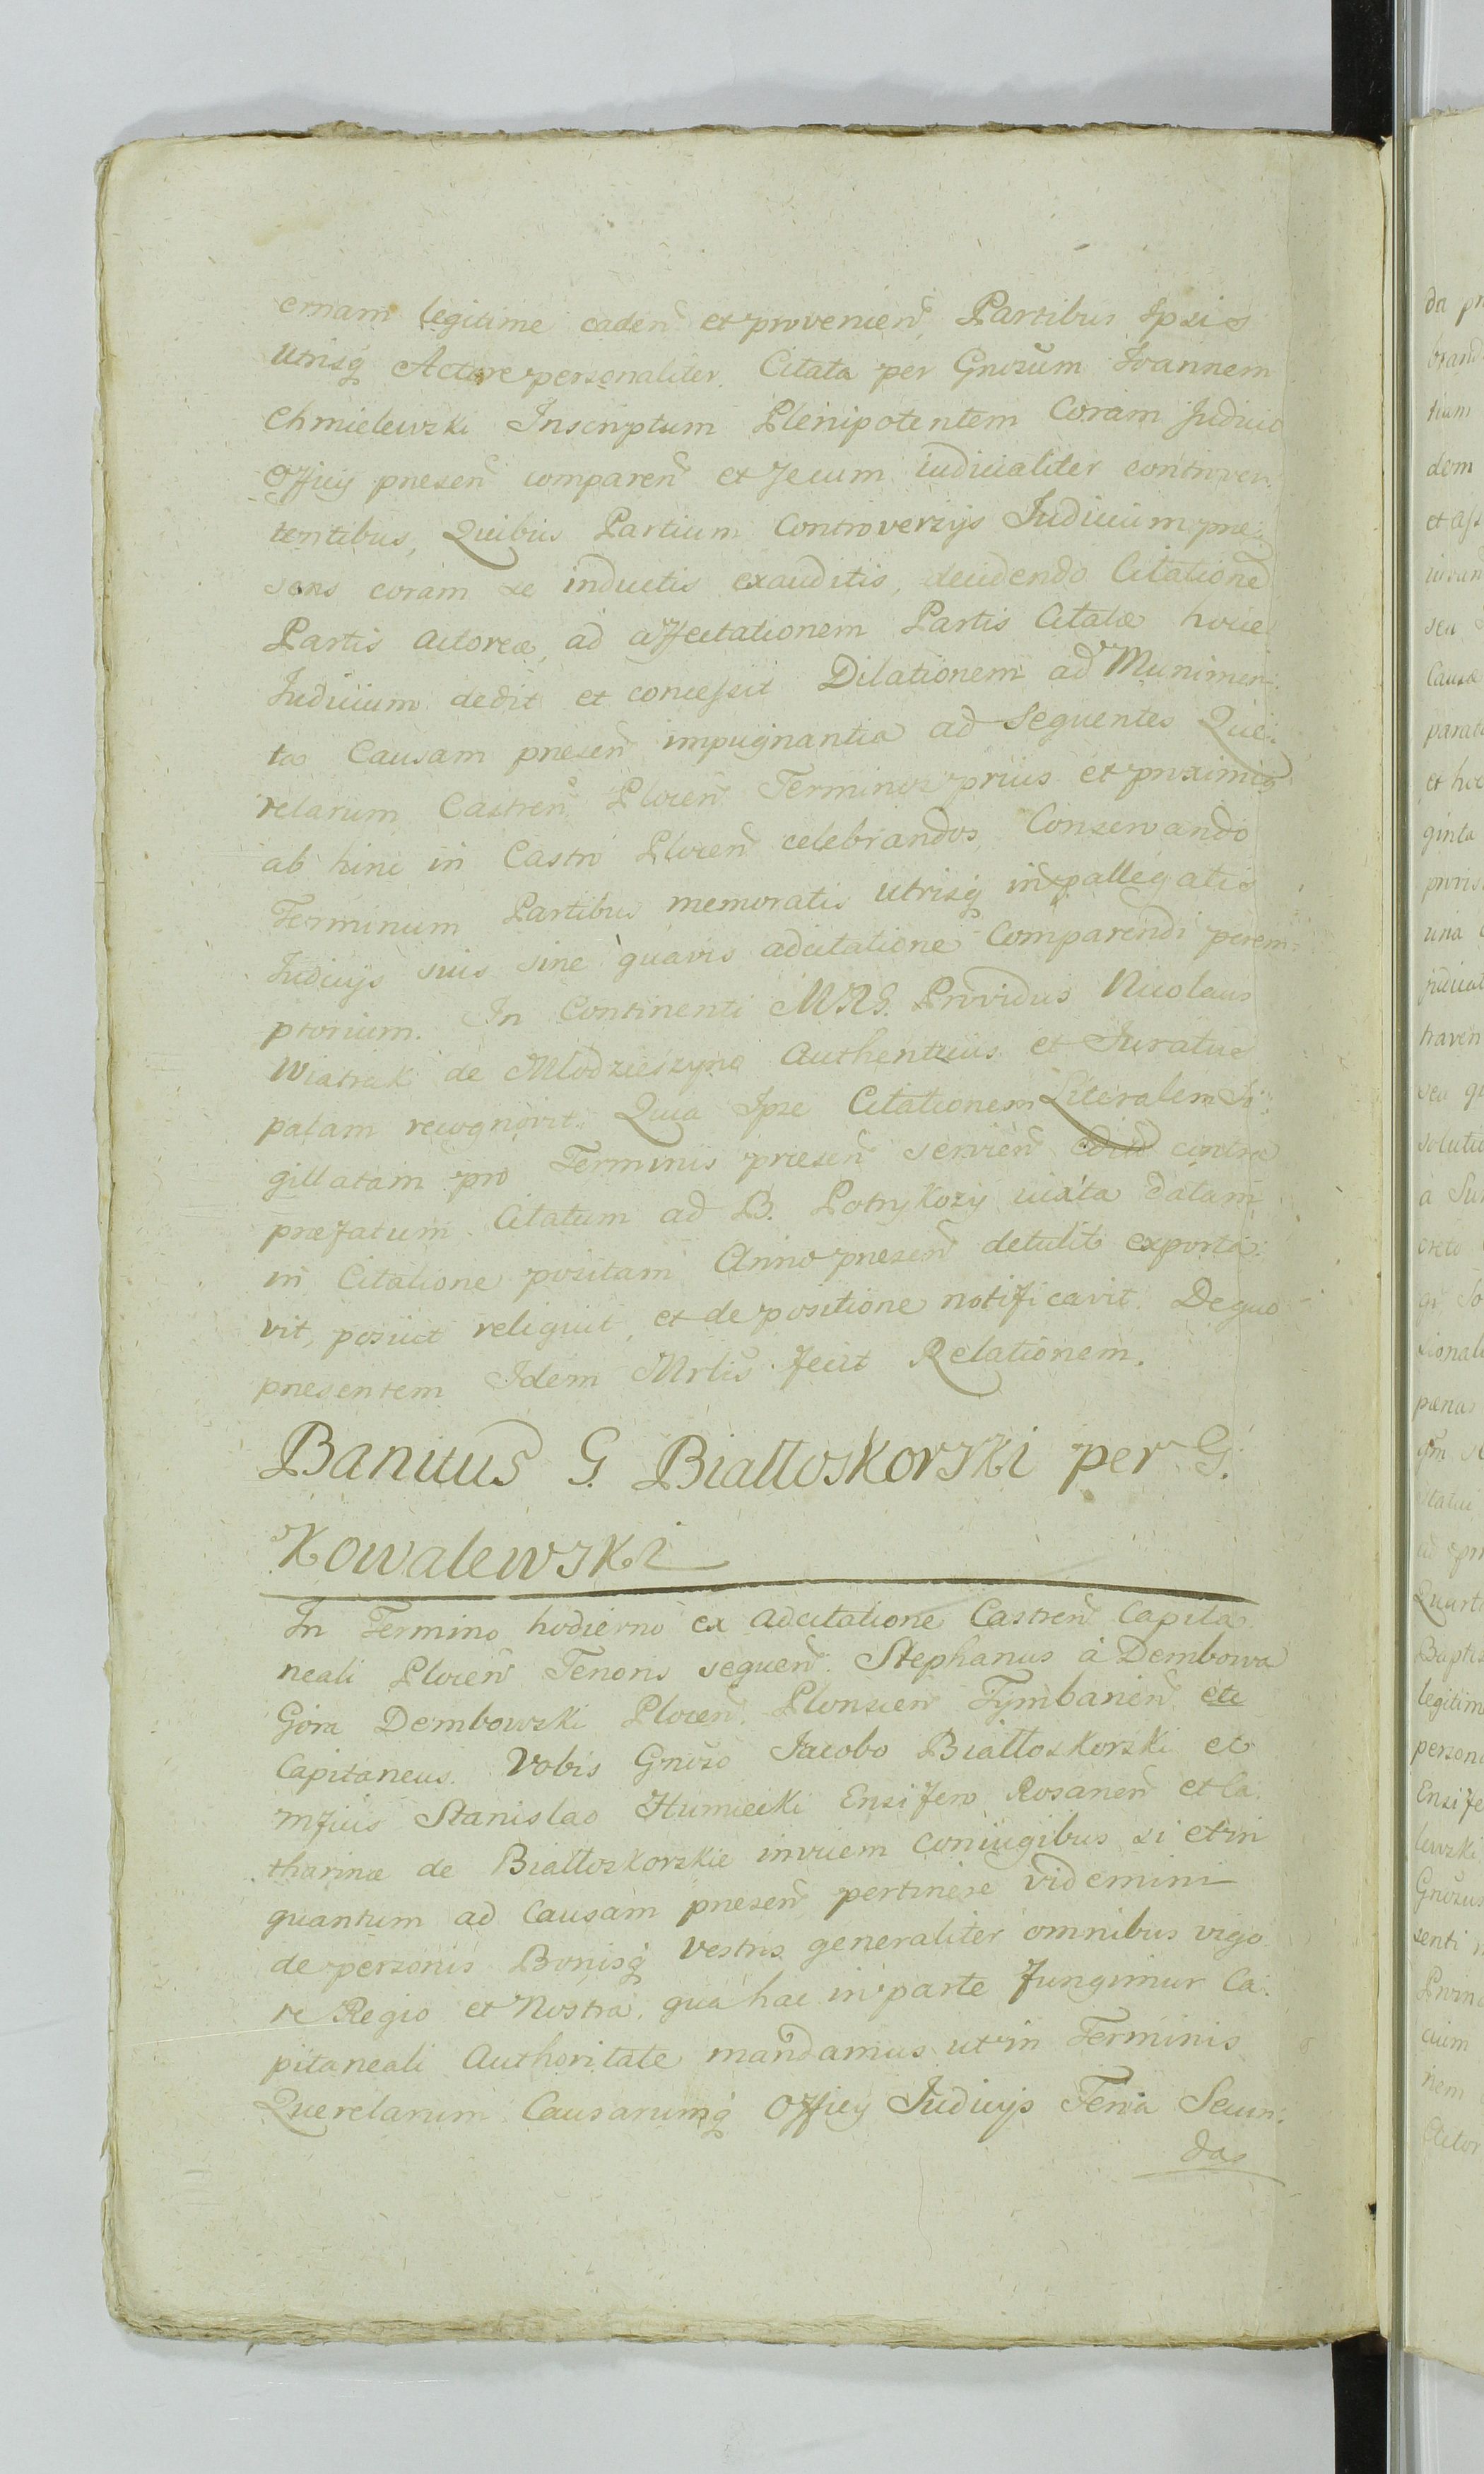 ernam legitime caden̄ et provenien̄, Partibus Ipsis
Utrisq́ Actore personaliter, Citata per Gnosum Ioannem
Chmielewski Inscriptum Plenipotentem Coram Judicio
Officij præsen̄ comparen̄ et secum iudicialiter controver:
tentibus, Quibus Partium Controversijs Judicium præ:
sens coram se inductis exauditis, decidendo Citatione
Partis actoreæ, ad affectationem Partis Citatæ
Judicium dedit et concessit Dilationem ad Munimen:
ta Causam præsen̄ impugnantia ad Sequentes Que:
relarum Castren̄ Plocen̄ Terminos prius et proximiq́
ab hinc in Castro Plocen̄ celebrandos Conservando
Terminum Partibus memoratis Utrisq́
Judicijs suis sine quavis adcitatione Comparendi perem:
ptorium. In Continenti MRG. Providus Nicolaus
Wiatrak de Mlodzieszyno Authenticus et Juratus
palam recognovit. Quia Ipse Citationem Literalem Si:
gillatam pro Terminis præsen̄ servien̄ contra
præfatum Citatum ad B. Potrykozy iuxta datam
in Citatione positam Anno præsen̄ detulit exporta:
vit, posuit reliquit, et de positione notificavit. De quo
præsentem Idem Mrlis fecit Relationem.
Banitus G. Białłoskorski per G.
Kowalewski
In Termino hodierno ex adcitatione Castren̄ Capita:
neali Plocen̄ Tenoris sequen̄. Stephanus à Dembowa
Gora Dembowski Plocen̄ Plonscen̄ Tymbarien̄ etc
Capitaneus. Vobis Gnoso Jacobo Białłoskorski et
mfcis Stanislao Humiecki Ensifero Rosanen̄ et Ca:
tharinæ de Białłoskorskie invicem coniugibus si et in
quantum ad Causam præsen̄ pertinere videmini
de personis Bonisq́ vestris generaliter omnibus vigo:
re Regio et Nostra, qua hac in parte fungimur Ca:
pitaneali Authoritate mandamus ut in Terminis
Querelarum Causarumq́ Officij Judicijs Feria Secun:
das